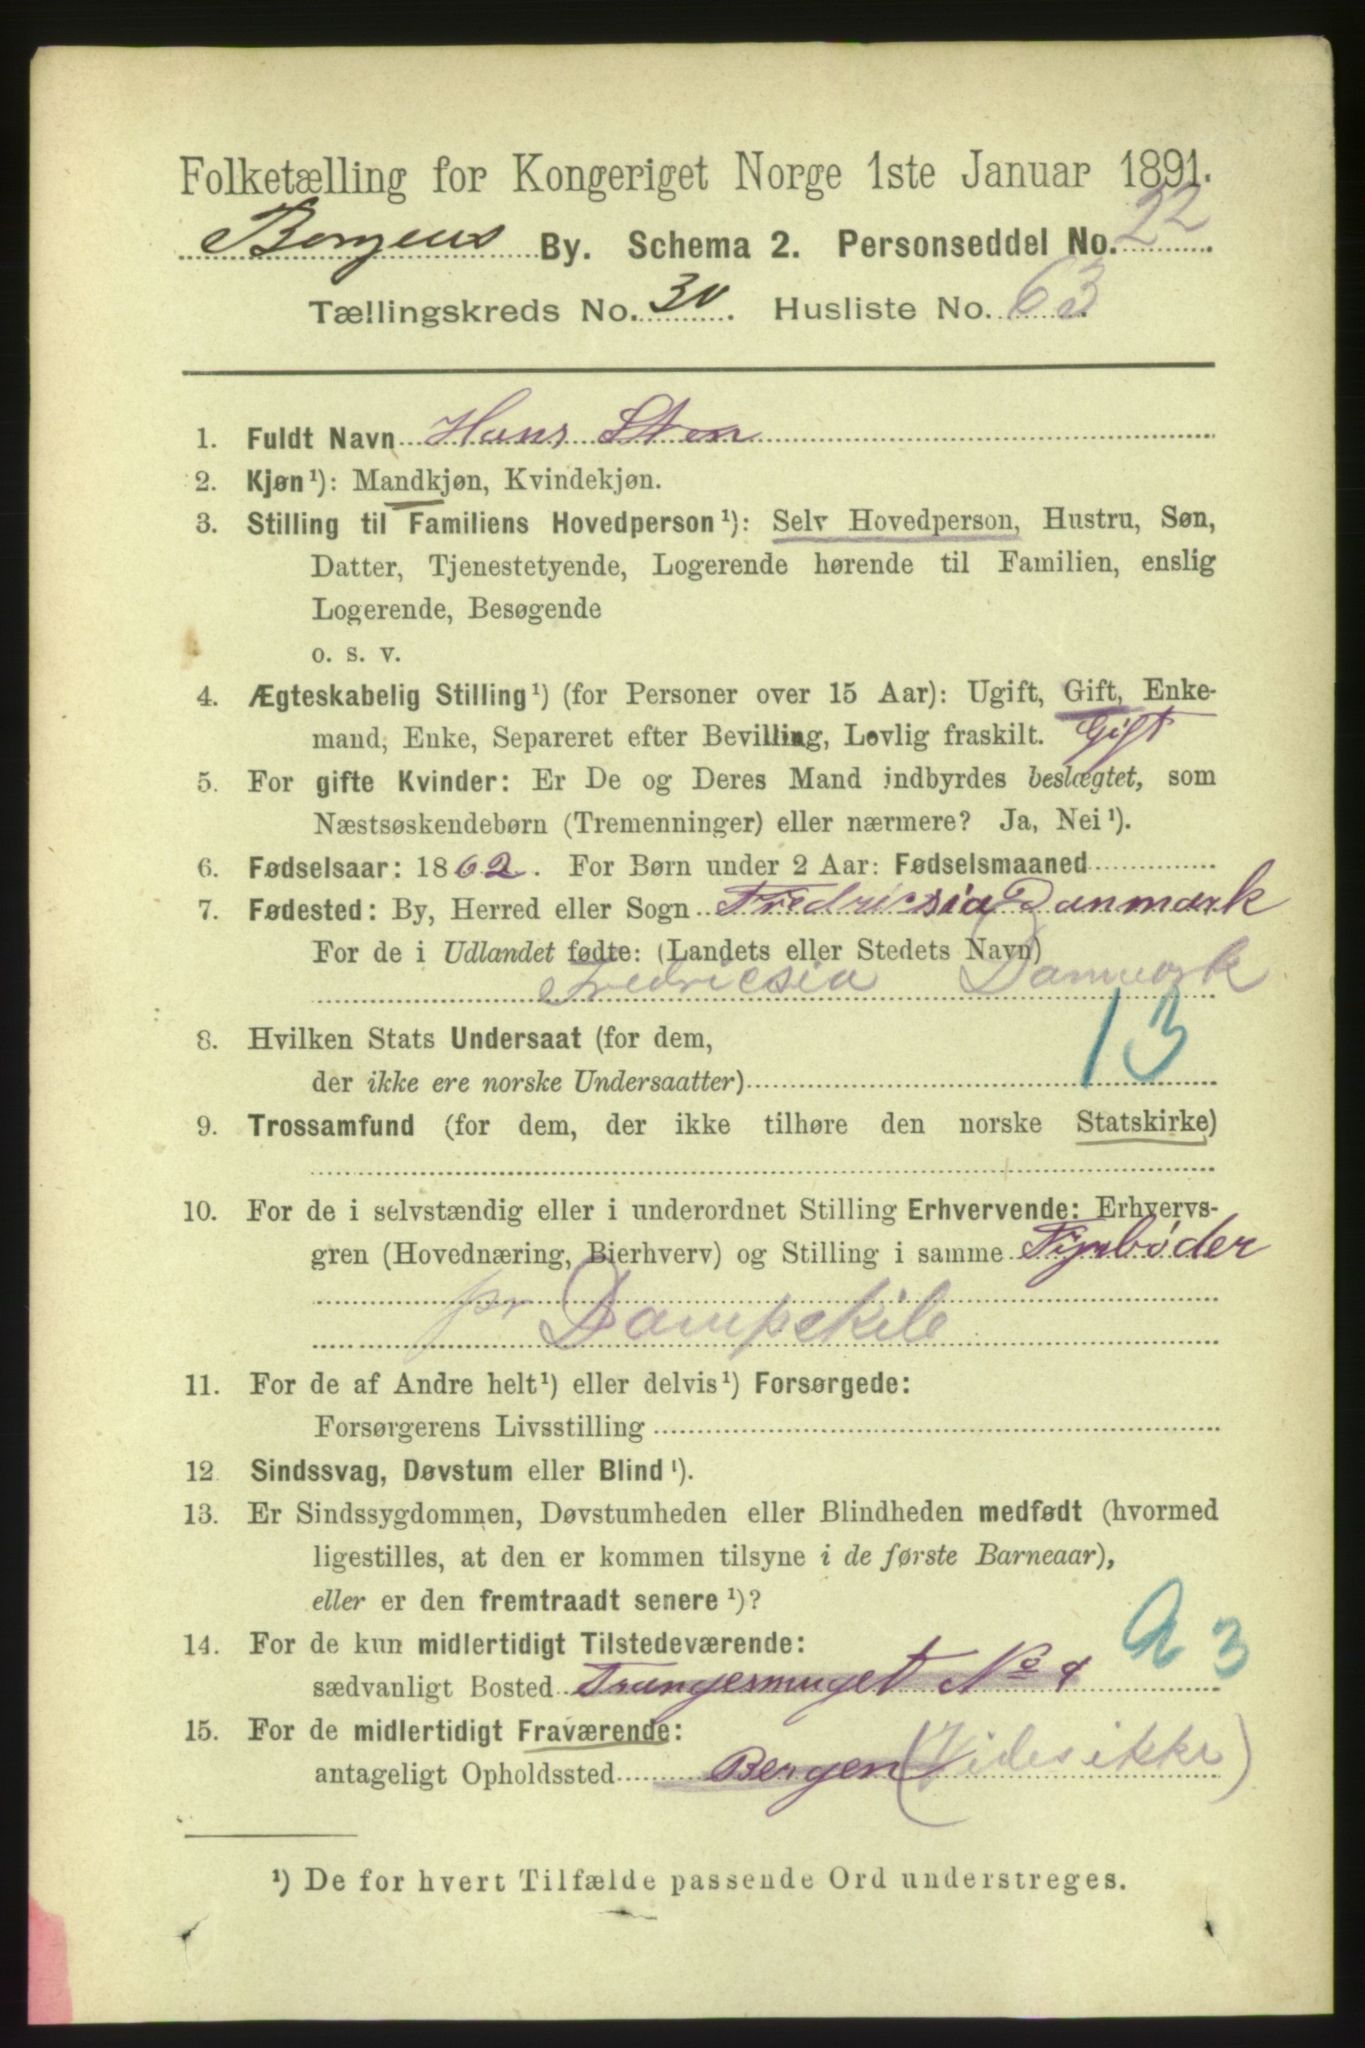 Folketælling for Kongeriget Norge 1ste Januar 1891.
Bergens By. Schema 2. Personseddel No. 22
Tællingskreds No. 30. Husliste No. 63
1. Fuldt Navn Hans Sten
2. Kjøn¹): Mandkjøn, Kvindekjøn.
3. Stilling til Familiens Hovedperson¹): Selv Hovedperson, Hustru, Søn,
Datter, Tjenestetyende, Logerende hørende til Familien, enslig
Logerende, Besøgende
o. s. v.
4. Ægteskabelig Stilling¹) (for Personer over 15 Aar): Ugift, Gift, Enke-
mand, Enke, Separeret efter Bevilling, Lovlig fraskilt. Gift
5. For gifte Kvinder: Er De og Deres Mand indbyrdes beslægtet, som
Næstsøskendebørn (Tremenninger) eller nærmere? Ja, Nei¹).
6. Fødselsaar: 1862. For Børn under 2 Aar: Fødselsmaaned
7. Fødested: By, Herred eller Sogn Fredricsia Danmark
For de i Udlandet fødte: (Landets eller Stedets Navn)
Fredricsia Danmark
13
8. Hvilken Stats Undersaat (for dem,
der ikke ere norske Undersaatter)
9. Trossamfund (for dem, der ikke tilhøre den norske Statskirke)
10. For de i selvstændig eller i underordnet Stilling Erhvervende: Erhvervs-
gren (Hovednæring, Bierhverv) og Stilling i samme Fyrbøder
pr Dampskib
11. For de af Andre helt¹) eller delvis¹) Forsørgede:
Forsørgerens Livsstilling
12 Sindssvag, Døvstum eller Blind¹).
13. Er Sindssygdommen, Døvstumheden eller Blindheden medfødt (hvormed
ligestilles, at den er kommen tilsyne i de første Barneaar),
eller er den fremtraadt senere¹)?
14. For de kun midlertidigt Tilstedeværende:
sædvanligt Bosted No 4
3
15. For de midlertidigt Fraværende:
antageligt Opholdssted Bergen (Vides ikke)
¹) De for hvert Tilfælde passende Ord understreges.